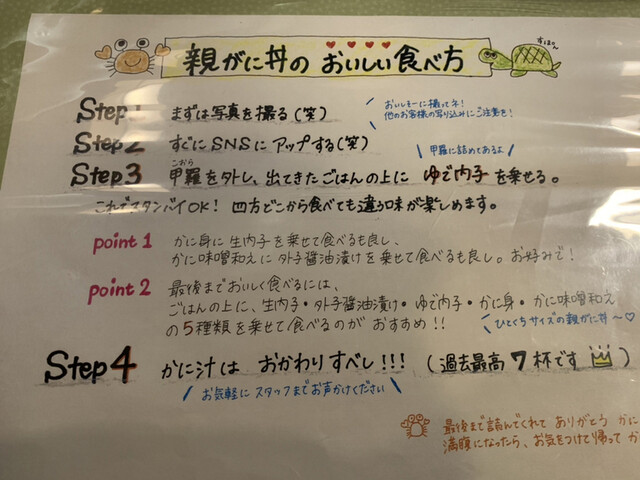 親がに丼の おいしい食べ方
Step1 まずは写真を撮る(笑)
おいしそーに撮ってネ!
他のお客様の写り込みにご注意を!
Step2 すぐにSNSにアップする(笑)
甲羅に詰めてあるよ
こおら
Step3 甲羅を外し、出てきたごはんの上に ゆで内子を乗せる。
これでスタンバイOK! 四方どこから食べても違う味が楽しめます。
point 1 かに身に生内子を乗せて食べるも良し、
かに味噌和えに外子醤油漬けを乗せて食べるも良し。お好みで!
point 2 最後までおいしく食べるには、
ごはんの上に、生内子・外子醤油漬け・ゆで内子・かに身・かに味噌和え
の5種類を乗せて食べるのが おすすめ!!
ひとくちサイズの親がに丼〜♡
Step4 かに汁は おかわりすべし!!! (過去最高7杯です)
お気軽にスタッフまでお声かけください
最後まで読んでくれて ありがとう かに
満腹になったら、お気をつけて帰って か